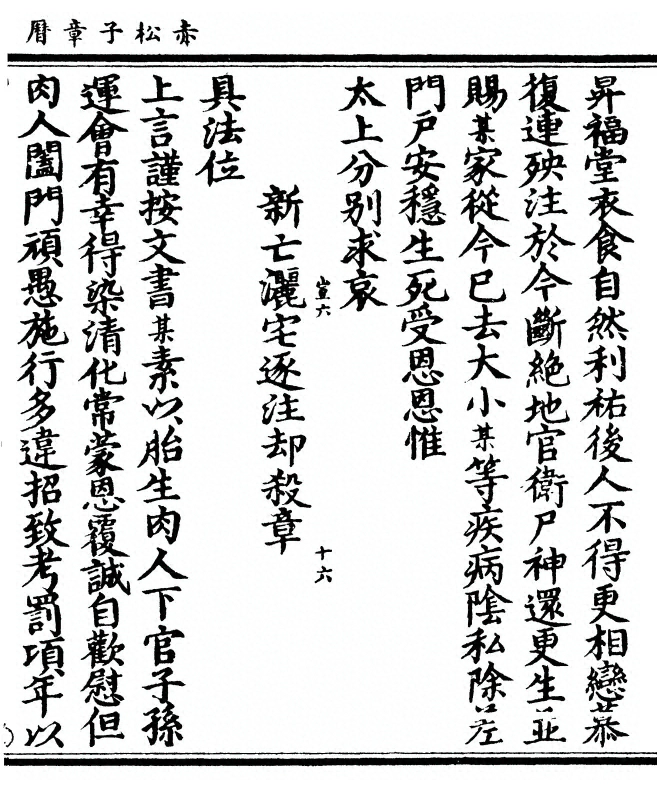 赤松子章曆
昇福堂衣食自然利祐後人不得更相戀慕
復連殃注於今斷絕地官衛尸神還更生並
賜某家從今已去大小某等疾病陰私除差
門戸安穩生死受恩恩惟
太上分別求哀
新亡灑宅逐注却殺章
豈六
十六
具法位
上言謹按文書某素以胎生肉人下官子孫
運會有幸得染清化常蒙恩覆誠自歡慰但
肉人闔門頑愚施行多違招致考罰項年以